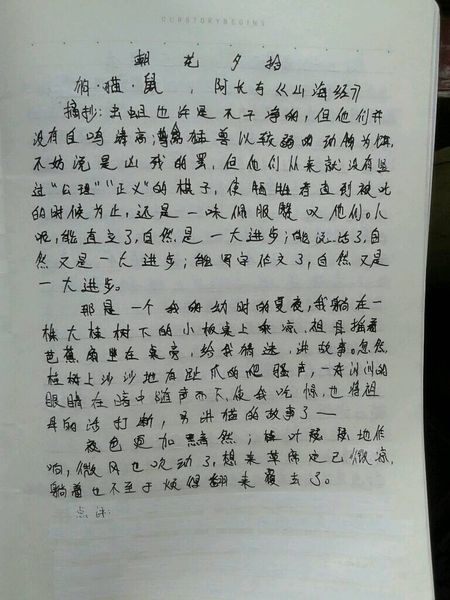 OURSTORYBEGINS
朝花夕拾
狗·猫·鼠，阿长与《山海经》
摘抄：虫蛆也许是不干净的，但他们并
没有自鸣清高；鸷禽猛兽以较弱的动物为饵，
不妨说是凶残的罢，但他们从来就没有竖
过“公理”“正义”的旗子，使牺牲者直到被吃
的时候为止，还是一味佩服赞叹他们。人
呢，能直立了，自然是一大进步；能说话了，自
然又是一大进步；能写字作文了，自然又是
一大进步。
那是一个我的幼时的夏夜，我躺在一
株大桂树下的小板桌上乘凉，祖母摇着
芭蕉扇坐在桌旁，给我猜谜，讲故事。忽然，
桂树上沙沙地有趾爪的爬搔声，一对闪闪的
眼睛在暗中随声而下，使我吃惊，也将祖
母的话打断，另讲猫的故事了——
夜色更加黯然；桂叶瑟瑟地作
响，微风也吹动了，想来草席定已微凉，
躺着也不至于烦得翻来覆去了。
点评：